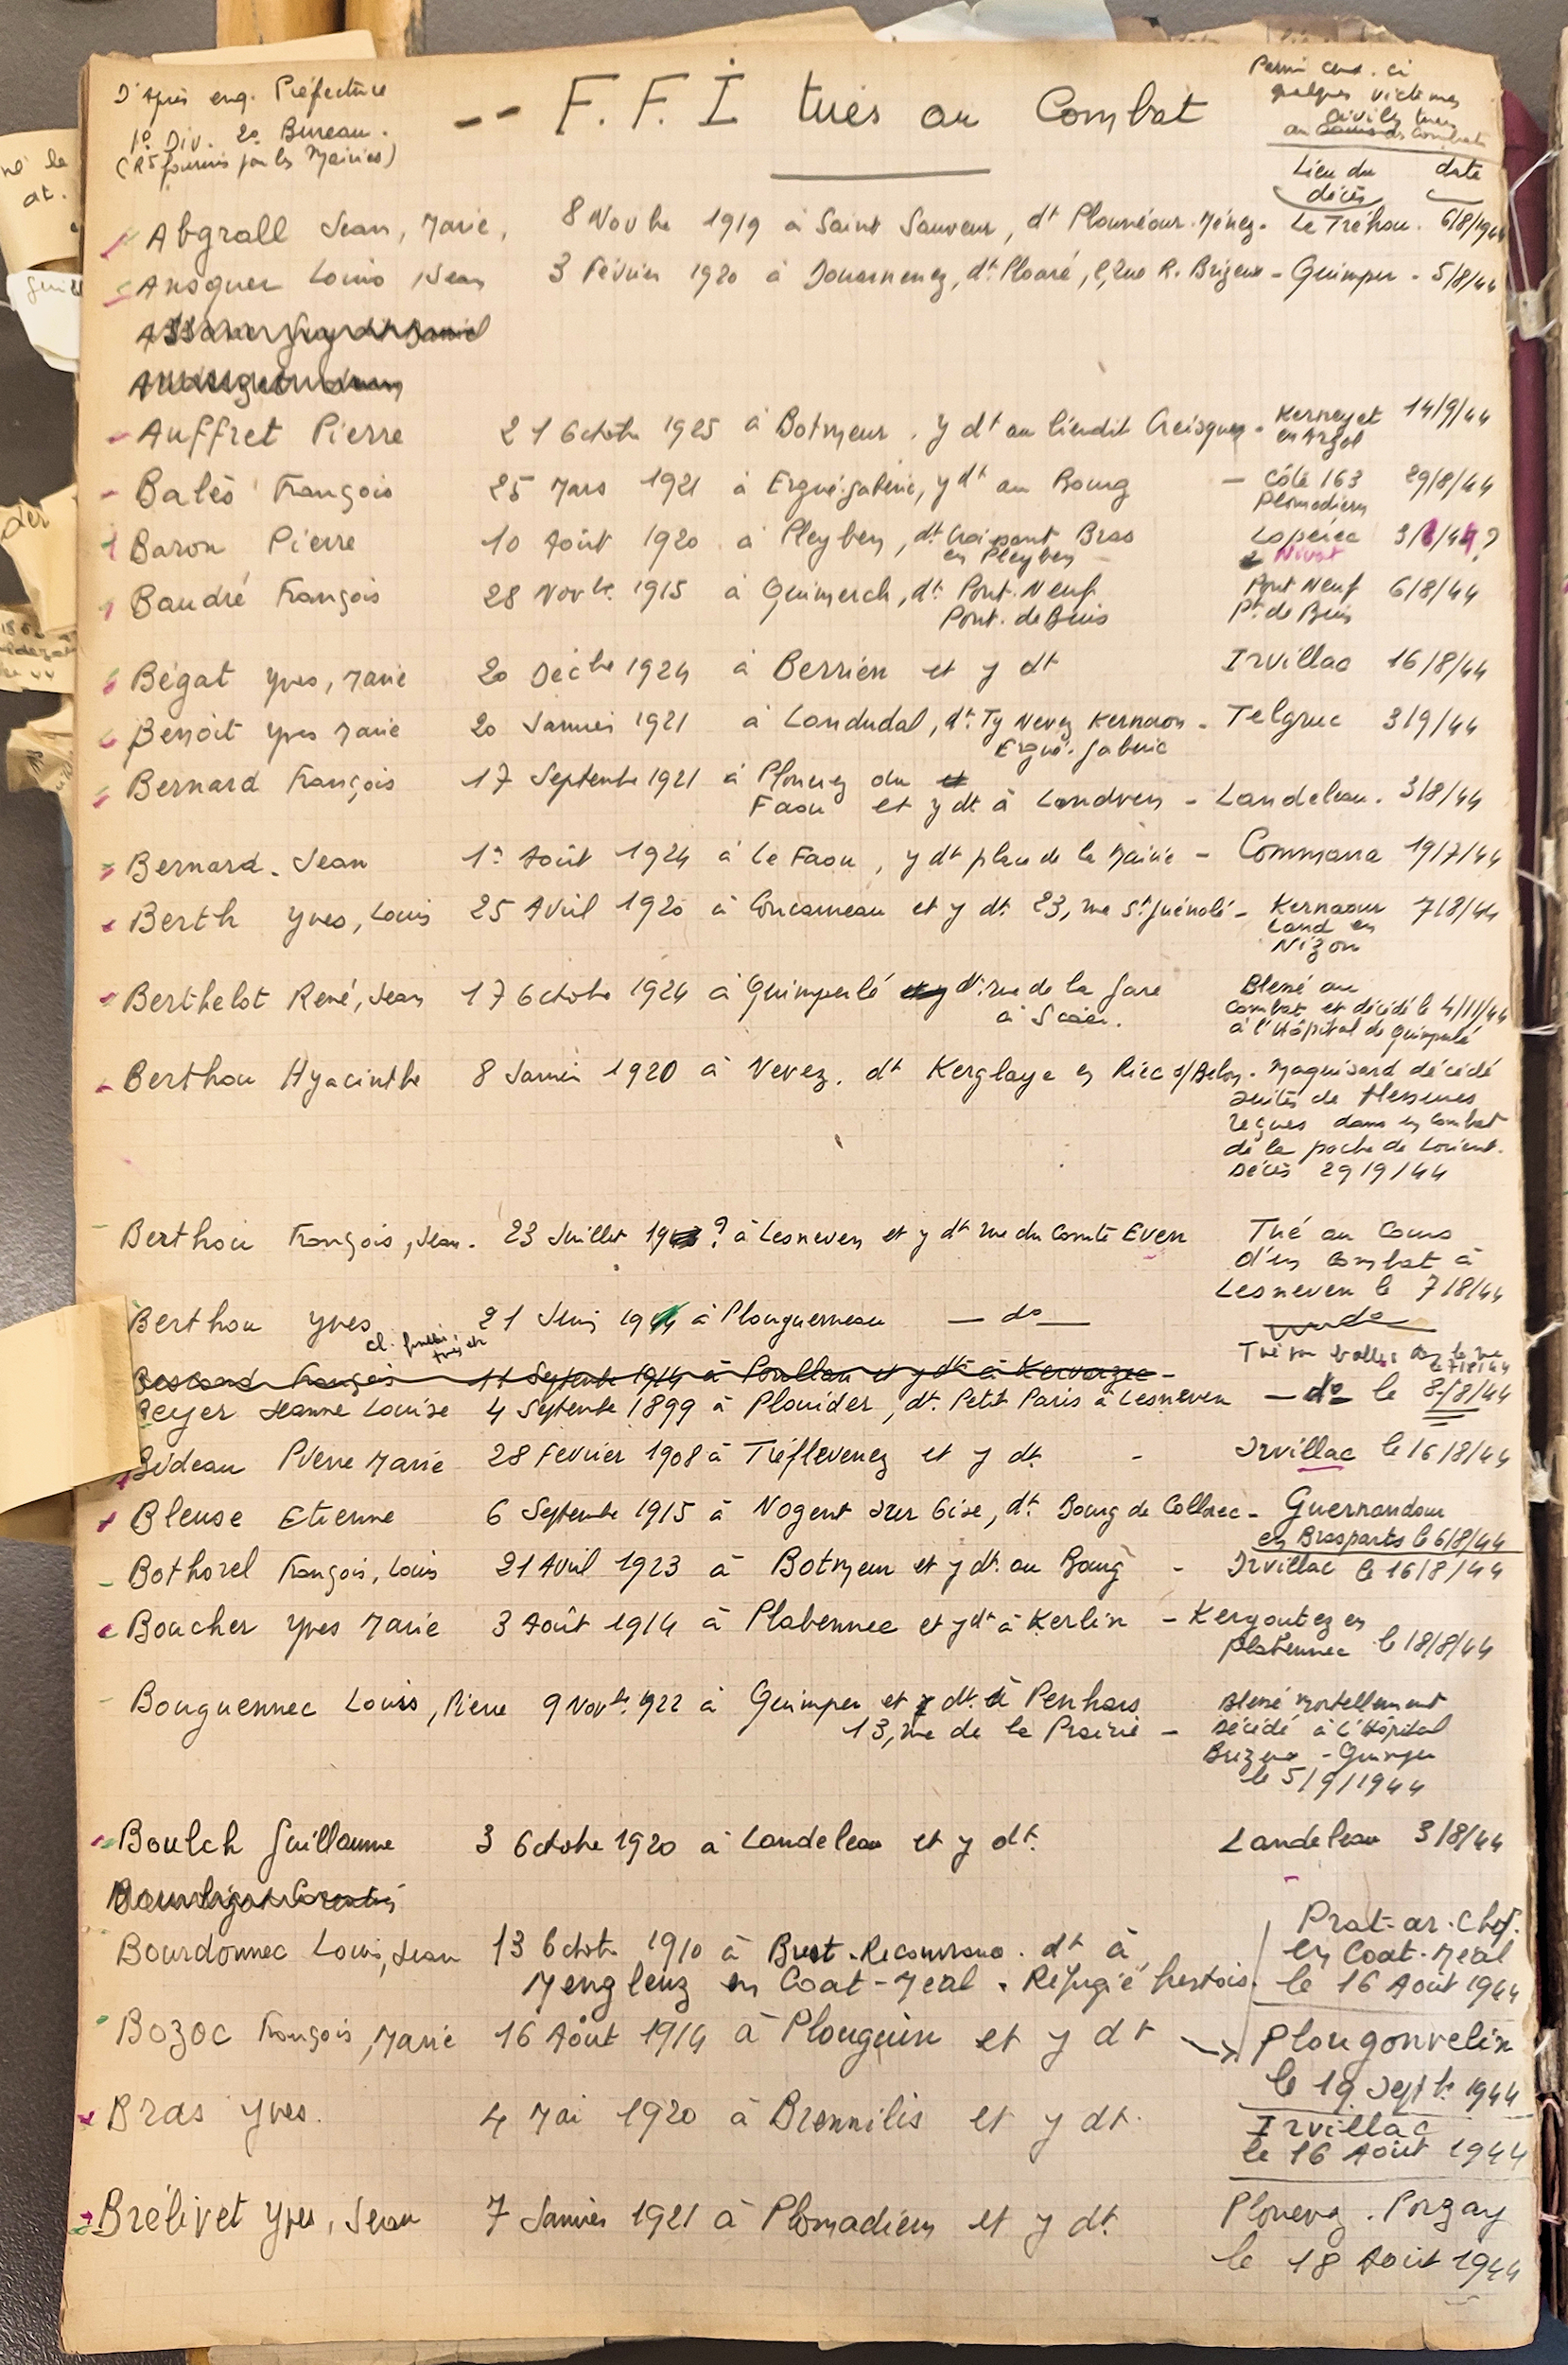 D'après enq. Préfecture
1º Div. 2º Bureau.
(Rts fournis par les Mairies)
-- F.F.I tués au Combat
Parmi ceux-ci
quelques victimes
civiles tuées
au combats
Lieu du décès date
Abgrall Jean, Marie, 8 Novbre 1919 à Saint Sauveur, dt Plounéour-Ménez - Le Tréhou. 6/8/1944
Ansquer Louis Jean 3 Février 1920 à Douarnenez, dt Ploaré, 2, Rue R. Brizeux - Quimper - 5/8/44
Auffret Pierre 21 Octobre 1925 à Botmeur. y dt au lieudit Creisquer - Kerneyet en Argol 14/9/44
Balès François 25 Mars 1921 à Ergué-Gabéric, y dt au Bourg - Côte 163 Plomodiern 29/8/44
Baron Pierre 10 Août 1920 à Pleyben, dt Croissant Bras en Pleyben - Lopérec 3/8/44 ?
Nivot
Baudré François 28 Novbre 1915 à Quimerch, dt. Pont-Neuf Pont-de-Buis Pont Neuf Pt de Buis 6/8/44
Bégat Yves, Marie 20 Décbre 1924 à Berrien et y dt Irvillac 16/8/44
Benoit Yves Marie 20 Janvier 1921 à Landudal, dt. Ty Nevez Kernaon - Telgruc 3/9/44
Ergué-Gabéric
Bernard François 17 Septembre 1921 à Plonevez du
Faou et y dt à Landren - Landeleau. 3/8/44
Bernard. Jean 1er Août 1924 à Le Faou, y dt place de la Mairie - Commana 19/7/44
Berth Yves, Louis 25 Avril 1920 à Concarneau et y dt. 23, rue St Guénolé - Kernaour 7/8/44
Land en
Nizon
Berthelot René, Jean 17 Octobre 1924 à Quimperlé dt. rue de la Gare à Scaër. Blessé au
combat et décédé le 4/11/44
à l'Hôpital de Quimperlé
Berthou Hyacinthe 8 Janvier 1920 à Nevez. dt Kerglaye en Riec s/Belon - Maquisard décédé
suites de blessures
reçues dans un combat
de la poche de Lorient.
Décès 29/9/44
Berthou François, Jean. 23 Juillet 19 ? à Lesneven et y dt rue du Comte Even Tué au cours
d'un combat à
Lesneven le 7/8/44
Berthou Yves 21 Juin 19 à Plouguerneau — do —
Bescond François 11 Septembre 1914 à Poullan et y dt à Kervarzec -
Beyer Jeanne Louise 4 Septembre 1899 à Plouider, dt. Petit Paris à Lesneven — do le 8/8/44
Bideau Pierre Marie 28 Février 1908 à Tréflevenez et y dt. - Irvillac le 16/8/44
Bleuse Etienne 6 Septembre 1915 à Nogent sur Oise, dt. Bourg de Collorec - Guernandour
en Brasparts le 6/8/44
Bothorel François, Louis 21 Avril 1923 à Botmeur et y dt. au Bourg - Irvillac le 16/8/44
Boucher Yves Marie 3 Août 1914 à Plabennec et y dt à Kerlin - Kergoutez en
Plabennec le 18/8/44
Bouguennec Louis, Pierre 9 Novbre 1922 à Quimper et dt. à Penhars Blessé mortellement
13, rue de la Prairie - Décédé à l'Hôpital
Brizeux - Quimper
le 5/9/1944
Boulch Guillaume 3 Octobre 1920 à Landeleau et y dt. Landeleau 3/8/44
Prat-ar-Chof.
Bourdonnec Louis, Jean 13 Octobre 1910 à Brest-Recouvrance. dt à en Coat-Méal
Mengleuz en Coat-Méal. Réfugié brestois. le 16 Août 1944
Bozoc François, Marie 16 Août 1914 à Plouguin et y dt → Plougonvelin
le 19 Septbre 1944
Bras Yves. 4 Mai 1920 à Brennilis et y dt. Irvillac
le 16 Août 1944
Brélivet Yves, Jean 7 Janvier 1921 à Plomodiern et y dt. Plonevez-Porzay
le 18 Août 1944